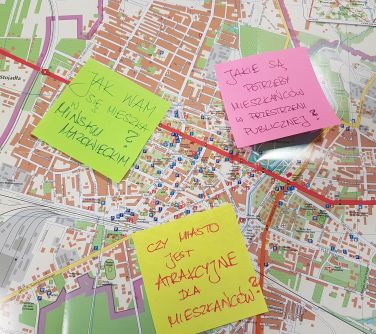 Stojadła
JAK WAM
SIĘ MIESZKA
W
MIŃSKU ?
MAZOWIECKIM
JAKIE SĄ
POTRZEBY
MIESZKAŃCÓW
W PRZESTRZENI
PUBLICZNEJ?
CZY MIASTO
JEST
ATRAKCYJNE
DLA
MIESZKAŃCÓW?